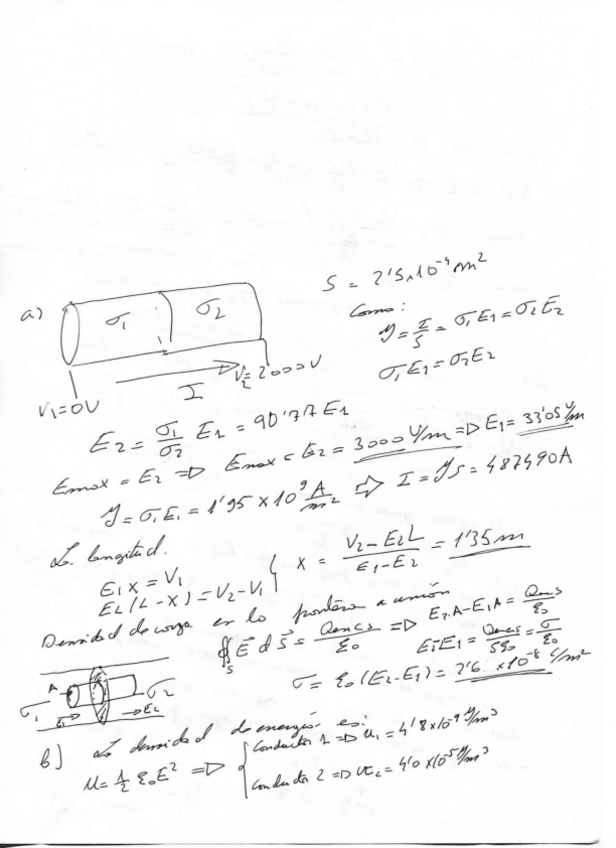 S = 2'5x10⁻⁴ m²
a)
σ₁ σ₂
Como:
J = I/S = σ₁E₁ = σ₂E₂
σ₁E₁ = σ₂E₂
V₁=0V I V₂=2000V
E₂ = σ₁/σ₂ E₁ = 90'77 E₁
Emax = E₂ => Emax = E₂ = 3000 V/m => E₁ = 33'05 V/m
J = σ₁E₁ = 1'95 x 10⁹ A/m² => I = JS = 487490A
La longitud.
E₁x = V₁
E₂(L-x) = V₂-V₁
x = V₂-E₂L / E₁-E₂ = 1'35 m
Densidad de carga en la frontera a unión
∮s E⃗ dS⃗ = Qencs/ε₀ => E₂A-E₁A = Qencs/ε₀
E₂-E₁ = Qencs/Sε₀ = σ/ε₀
σ = ε₀(E₂-E₁) = 2'6 x10⁻⁸ C/m²
A σ₁ σ₂ E₁ E₂
b) La densidad de energía es:
u = 1/2 ε₀E² =>
Conductor 1 => u₁ = 4'8x10⁻⁹ J/m³
Conductor 2 => u₂ = 4'0x10⁻⁵ J/m³